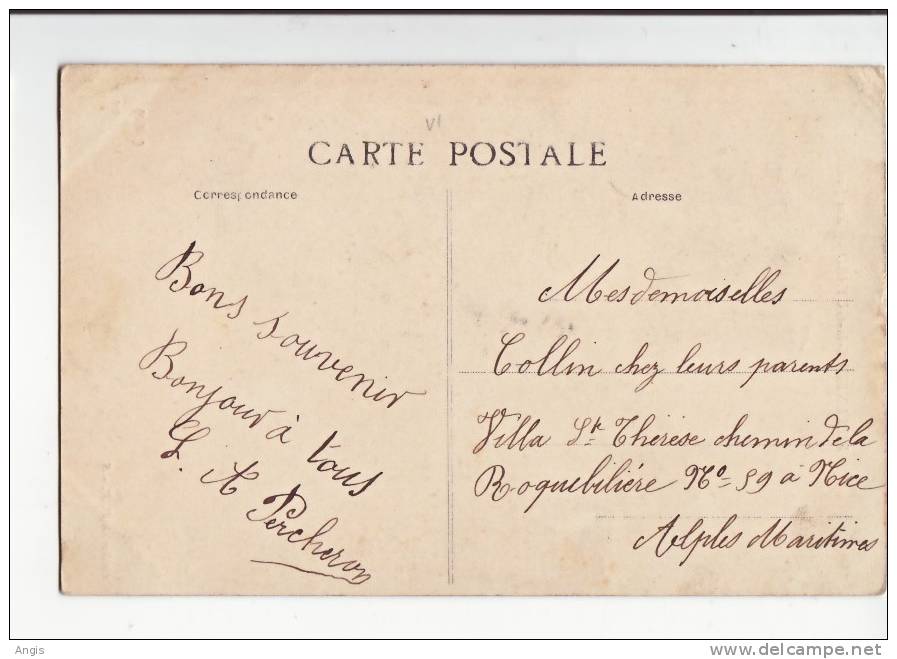 VI
CARTE POSTALE
Correspondance
Adresse
Bons souvenir
Bonjour à tous
L. A Percheron
Mesdemoiselles
Collin chez leurs parents
Villa Ste Thérèse chemin de la
Roquebilière No 59 à Nice
Alples Maritimes
Angis
www.delcampe.net